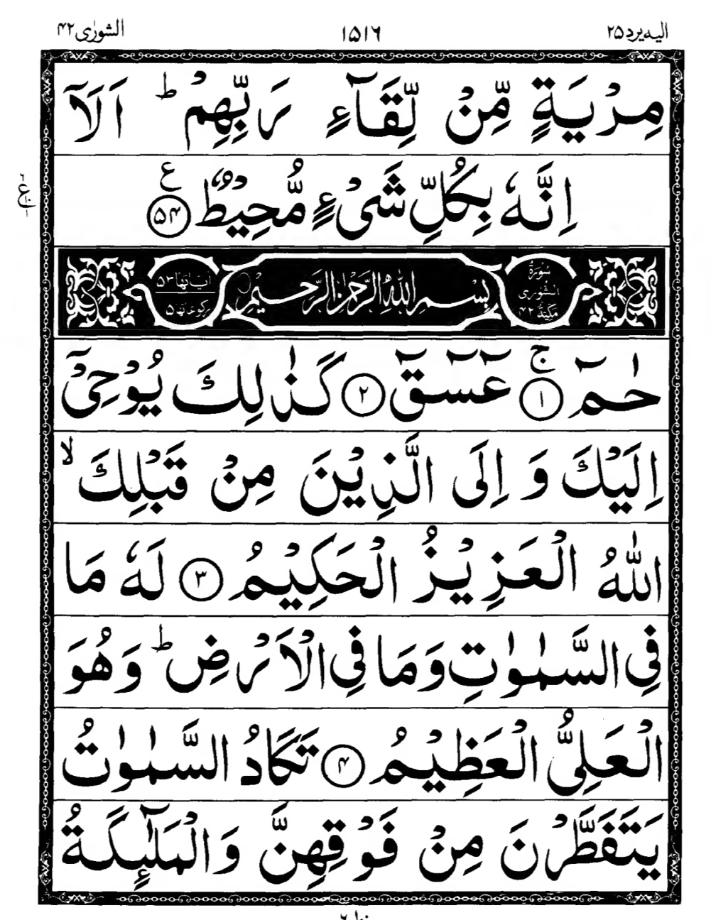 الیه یرد ۲۵
۱۵۱۶
الشورٰی ۴۲
مِرْیَةٍ مِّنْ لِّقَآءِ رَبِّهِمْ ؕ اَلَاۤ
اِنَّهٗ بِكُلِّ شَیْءٍ مُّحِیْطٌ ﴿۵۴﴾ ع
ع
سُوْرَةُ الشُّوْرٰی مَكِّیَّة ۴۲
بِسْمِ اللّٰهِ الرَّحْمٰنِ الرَّحِیْمِ
اٰیاتها ۵۳ رکوعاتها ۵
حٰمٓ ۚ﴿۱﴾ عٓسٓقٓ ﴿۲﴾ كَذٰلِكَ یُوْحِیْۤ
اِلَیْكَ وَ اِلَی الَّذِیْنَ مِنْ قَبْلِكَ ۙ
اللّٰهُ الْعَزِیْزُ الْحَكِیْمُ ﴿۳﴾ لَهٗ مَا
فِی السَّمٰوٰتِ وَمَا فِی الْاَرْضِ ؕ وَهُوَ
الْعَلِیُّ الْعَظِیْمُ ﴿۴﴾ تَكَادُ السَّمٰوٰتُ
یَتَفَطَّرْنَ مِنْ فَوْقِهِنَّ وَالْمَلٰٓىِٕكَةُ